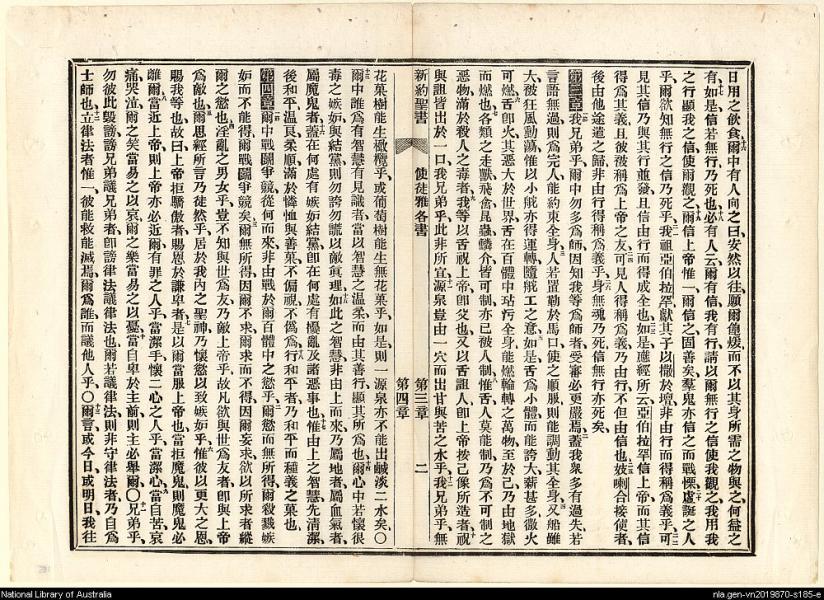 日用之飲食爾中有人向之曰安然以往願爾飽煖而不以其身所需之物與之何益之
有如是信若無行乃死也必有人云爾有信我有行請以爾無行之信使我觀之我用我
之行顯我之信使爾觀之爾信上帝惟一爾信之固善矣羣鬼亦信之而戰慄虛誕之人
乎爾欲知無行之信乃死乎我祖亞伯拉罕獻其子以撒於壇非由行而得稱爲義乎可
見其信乃與其行並發且信由行而得成全也如是應經所云亞伯拉罕信上帝而其信
得爲其義且彼被稱爲上帝之友可見人得稱爲義乃由行不但由信也妓喇合接使者
後由他途遣之歸非由行得稱爲義乎身無魂乃死信無行亦死矣
第三章我兄弟乎爾中勿多爲師因知我等爲師者受審必更嚴焉蓋我衆多有過失若
言語無過則爲完人能約束全身人若置勒於馬口使之順服則能調動其全身又船雖
大被狂風動蕩惟以小舵亦得運轉隨舵工之意如是舌爲小體而能誇大薪甚多微火
可燃舌即火其惡大於世界舌在百體中玷污全身能燃輪轉之萬物至於己乃由地獄
而燃也各類之走獸飛禽昆蟲鱗介皆可制亦已被人制惟舌人莫能制乃爲不可制之
惡物滿於殺人之毒者我等以舌祝上帝即父也又以舌詛人即上帝按己像所造者祝
與詛皆出於一口我兄弟乎此非所宜源泉豈由一穴而出甘與苦之水乎我兄弟乎無
新約聖書 使徒雅各書 第三章 第四章 二
花菓樹能生橄欖乎或葡萄樹能生無花菓乎如是則一源泉亦不能出鹹淡二水矣〇
爾中誰爲有智慧有見識者當以智慧之温柔而由其善行顯其所爲也爾心中若懷很
毒之嫉妒與結黨則勿誇勿謊以敵眞理如此之智慧非由上而來乃屬地者屬血氣者
屬魔鬼者蓋在何處有嫉妒結黨即在何處有擾亂及諸惡事也惟由上之智慧先清潔
後和平温良柔順滿於憐恤與善菓不偏視不僞爲行和平者乃和平而種義之菓也
第四章爾中戰鬬爭競從何而來非由戰於爾百體中之慾乎爾慾而無所得爾殺戮嫉
妒而不能得爾戰鬬爭競矣爾無所得因爾不求爾求而不得因爾妄求欲以所求者縱
爾之慾也淫亂之男女乎豈不知與世爲友乃敵上帝乎故凡欲與世爲友者即與上帝
爲敵也爾思經所言乃徒然乎居於我內之聖神乃懷慾以致嫉妒乎惟彼以更大之恩
賜我等也故曰上帝拒驕傲者賜恩於謙卑者是以爾當服上帝也當拒魔鬼則魔鬼必
離爾當近上帝則上帝亦必近爾有罪之人乎當潔手懷二心之人乎當潔心當自苦哀
痛哭泣爾之笑當易之以哀爾之樂當易之以憂當自卑於主前則主必舉爾〇兄弟乎
勿彼此毀謗謗兄弟議兄弟者即謗律法議律法也爾若議律法則非守律法者乃自爲
士師也立律法者惟一彼能救能滅焉爾爲誰而議他人乎〇爾言或今日或明日我往
National Library of Australia
nla.gen-vn2019870-s185-e